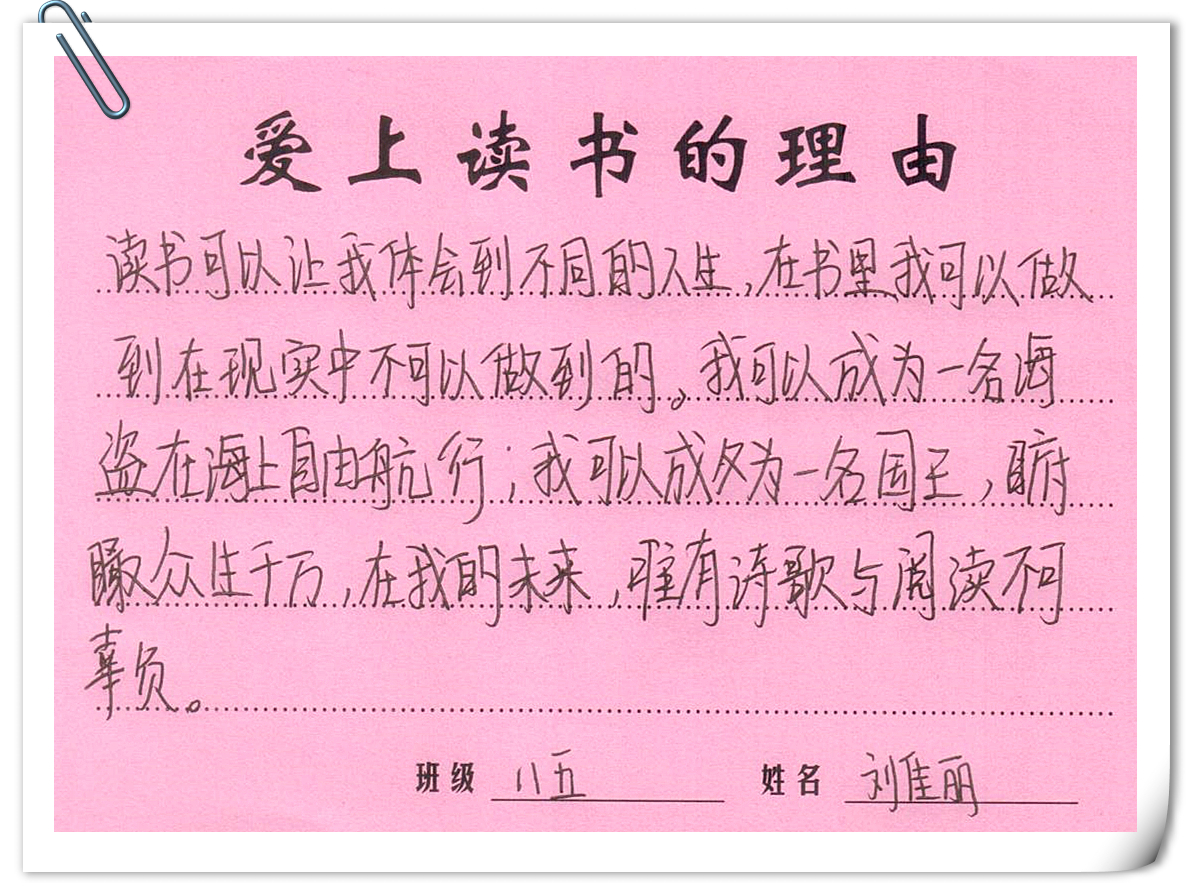 爱上读书的理由
读书可以让我体会到不同的人生,在书里我可以做
到在现实中不可以做到的。我可以成为一名海
盗在海上自由航行;我可以成为一名国王,俯
瞰众生千万,在我的未来,唯有诗歌与阅读不可
辜负。
班级 八五 姓名 刘佳丽